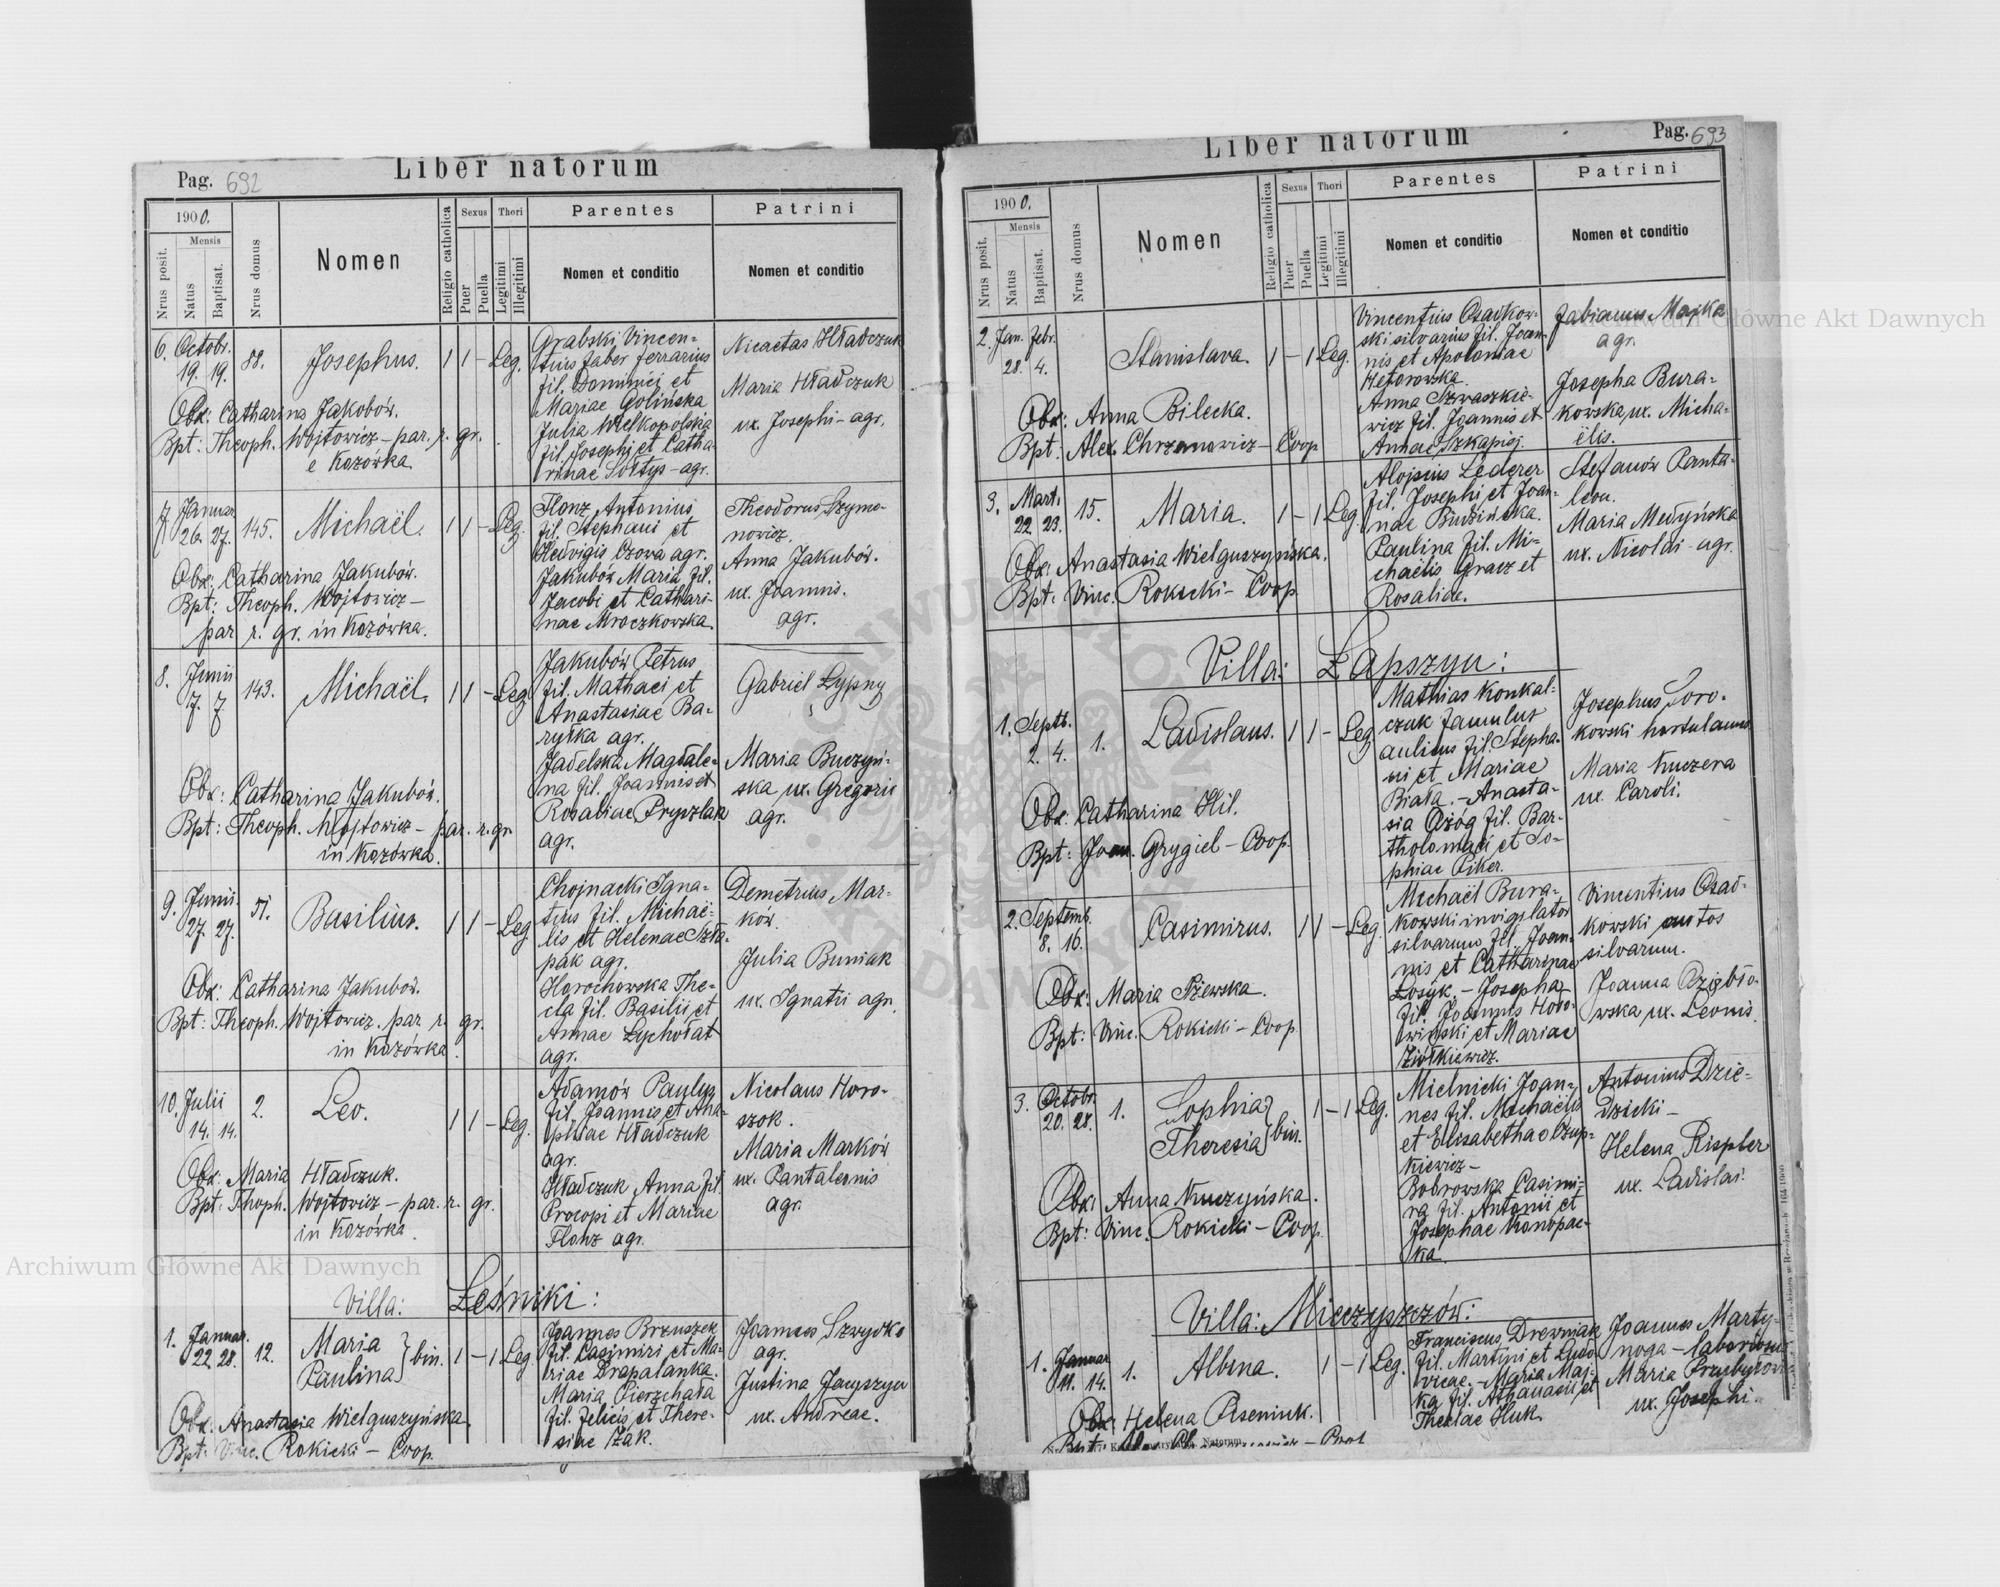 Pag. 692
Liber natorum
1900.
Nrus posit.
Mensis
Natus
Baptisat.
Nrus domus
Nomen
Religio catholica
Sexus
Puer
Puella
Thori
Legitimi
Illegitimi
Parentes
Nomen et conditio
Patrini
Nomen et conditio
6. Octobr. 19. 19. 88. Josephus. 1 1 - Leg.
Grabski Vincen-
tius faber ferrarius
fil. Dominici et
Mariae Golińska
Julia Wielkopolska
fil. Josephi et Catha-
rinae Sołtys - agr.
Nicaetas Hładczuk
Maria Hładczuk
ux. Josephi - agr.
Obx: Catharina Jakobów.
Bpt: Theoph. Wojtowicz - par. r. gr.
e Kozówka.
7. Januar. 26. 27. 145. Michaël. 1 1 - Leg.
Antonius
fil. Stephani et
Hedvigis Czowa agr.
Jakubów Maria fil.
Jacobi et Cathari-
nae Mroczkowska.
Theodorus Szymo-
nowicz.
Anna Jakubów.
ux. Joannis.
agr.
Obx: Catharina Jakubów.
Bpt: Theoph. Wojtowicz -
par r. gr. in Kozówka.
8. Junii 7. 7 143. Michaël. 1 1 - Leg.
Jakubów Petrus
fil. Mathaei et
Anastasiae Ba-
ryłka agr.
Jadelska Magdale-
na fil. Joannis et
Rosaliae Pryszlak
agr.
Gabriel Łypny
Maria Buczyń-
ska ux. Gregorii
agr.
Obx: Catharina Jakubów.
Bpt: Theoph. Wojtowicz - par. r. gr.
in Kozówka.
9. Junii. 27. 27. 51. Basilius. 1 1 - Leg.
Chojnacki Igna-
tius fil. Michaë-
lis et Helenae Szła-
pak agr.
Horochowska The-
cla fil. Basilii et
Annae Łychołat
agr.
Demetrius Mar-
ków.
Julia Buniak
ux. Ignatii agr.
Obx: Catharina Jakubów.
Bpt: Theoph. Wojtowicz. par r. gr.
in Kozówka.
10. Julii 14. 14. 2. Leo. 1 1 - Leg.
Adamów Paulus
fil. Joannis et Ana-
phiae Hładczuk
agr.
Hładczuk Anna fil.
Procopi et Mariae
agr.
Nicolaus Horo-
szok.
Maria Marków
ux. Pantaleonis
agr.
Obx: Maria Hładczuk.
Bpt: Thoph. Wojtowicz - par. r. gr.
in Kozówka.
Villa: Leśniki:
1. Januar. 22 28. 12. Maria
Paulina } bin. 1 - 1 Leg.
Joannes Brzuszek
fil. Casimiri et Ma-
riae Drapalanka.
Maria Pierzchała
fil. Felicis et There-
siae Żak.
Joannes Szwydko
agr.
Justina Jacyszyn
ux. Andreae.
Obx: Anastasia Wielguszyńska.
Bpt: Vinc. Rokicki - Coop.
Liber natorum
Pag. 693
1900.
Nrus posit.
Mensis
Natus
Baptisat.
Nrus domus
Nomen
Religio catholica
Sexus
Puer
Puella
Thori
Legitimi
Illegitimi
Parentes
Nomen et conditio
Patrini
Nomen et conditio
2. Jan. Febr. 28. 4. Stanislava. 1 - 1 Leg.
Vincentius Osadkow-
ski silvarius fil. Joan-
nis et Apoloniae
Anna Szwaszkie-
wicz fil. Joannis et
Annae Szkapiej.
Fabianus Majka
agr.
Josepha Bura-
kowska, ux. Micha-
ëlis.
Obx: Anna Bilecka.
Bpt: Alex. Chrzanowicz - Coop
3. Mart. 22. 23. 15. Maria. 1 - 1 Leg.
Aloysius Lederer
fil. Josephi et Joan-
nae Budzińska.
Paulina fil. Mi-
chaëlis Gracz et
Rosaliae.
Stefanów Panta-
leon.
Maria Medyńska
ux. Nicolai - agr.
Obx: Anastasia Wielguszyńska.
Bpt: Vinc. Rokicki - Coop
Villa: Łapszyn:
1. Septb. 2. 4. 1. Ladislaus. 1 1 - Leg
Mathias Konkal-
czuk famulus
aulicus fil. Stepha-
ni et Mariae
Biała. - Anasta-
sia Ożóg fil. Bar-
tholomaei et So-
phiae Piker.
Josephus Soro-
kowski hortulanus
Maria Kuczera
ux. Caroli.
Obx: Catharina Hil.
Bpt: Joan. Grygiel - Coop.
2. Septemb. 8. 16. Casimirus. 1 1 - Leg.
Michaël Bura-
kowski invigilator
silvarum fil. Joan-
nis et Catharinae
Łosyk. - Josepha
fil. Joannis Horo-
wiński et Mariae
Ziółkiewicz.
Vincentius Osad-
kowski custos
silvarum.
Joanna Dziębło-
wska ux. Leonis.
Obx: Maria Pżewska.
Bpt: Vinc. Rokicki - Coop
3. Octobr. 20. 28. 1. Sophia
Theresia } bin. 1 - 1 Leg.
Mielnicki Joan-
nes fil. Michaëlis
et Elisabethae Czup-
kiewicz -
Bobrowska Casimi-
ra fil. Antonii et
Josephae Konopac-
ka.
Antonius Dzie-
dzicki -
Helena Rispler
ux. Ladislai.
Obx: Anna Kuczyńska.
Bpt: Vinc. Rokicki - Coop.
Villa: Mieczyszczów:
1. Januar 11. 14. 1. Albina. 1 - 1 Leg.
Franciscus Drewniak
fil. Martini et Ludo-
vicae. - Maria Maj-
ka fil. Athanasii et
Theclae Huk.
Joannes Marty-
noga - laborosus
Maria Przybyłow
ux. Josephi.
Obx: Helena Piseniuk.
Archiwum Główne Akt Dawnych
Archiwum Główne Akt Dawnych